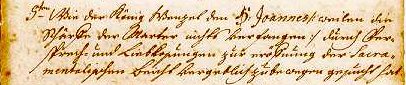 5tens Wie der König Wenzel den H: Joannes /: weilen die
Stärke der Marter nichts verfangen :/ durch Ver-
sprech- und Liebkosungen zur eröfnung der Sacra-
mentalischen Beicht vergeblich zubewegen gesucht hat